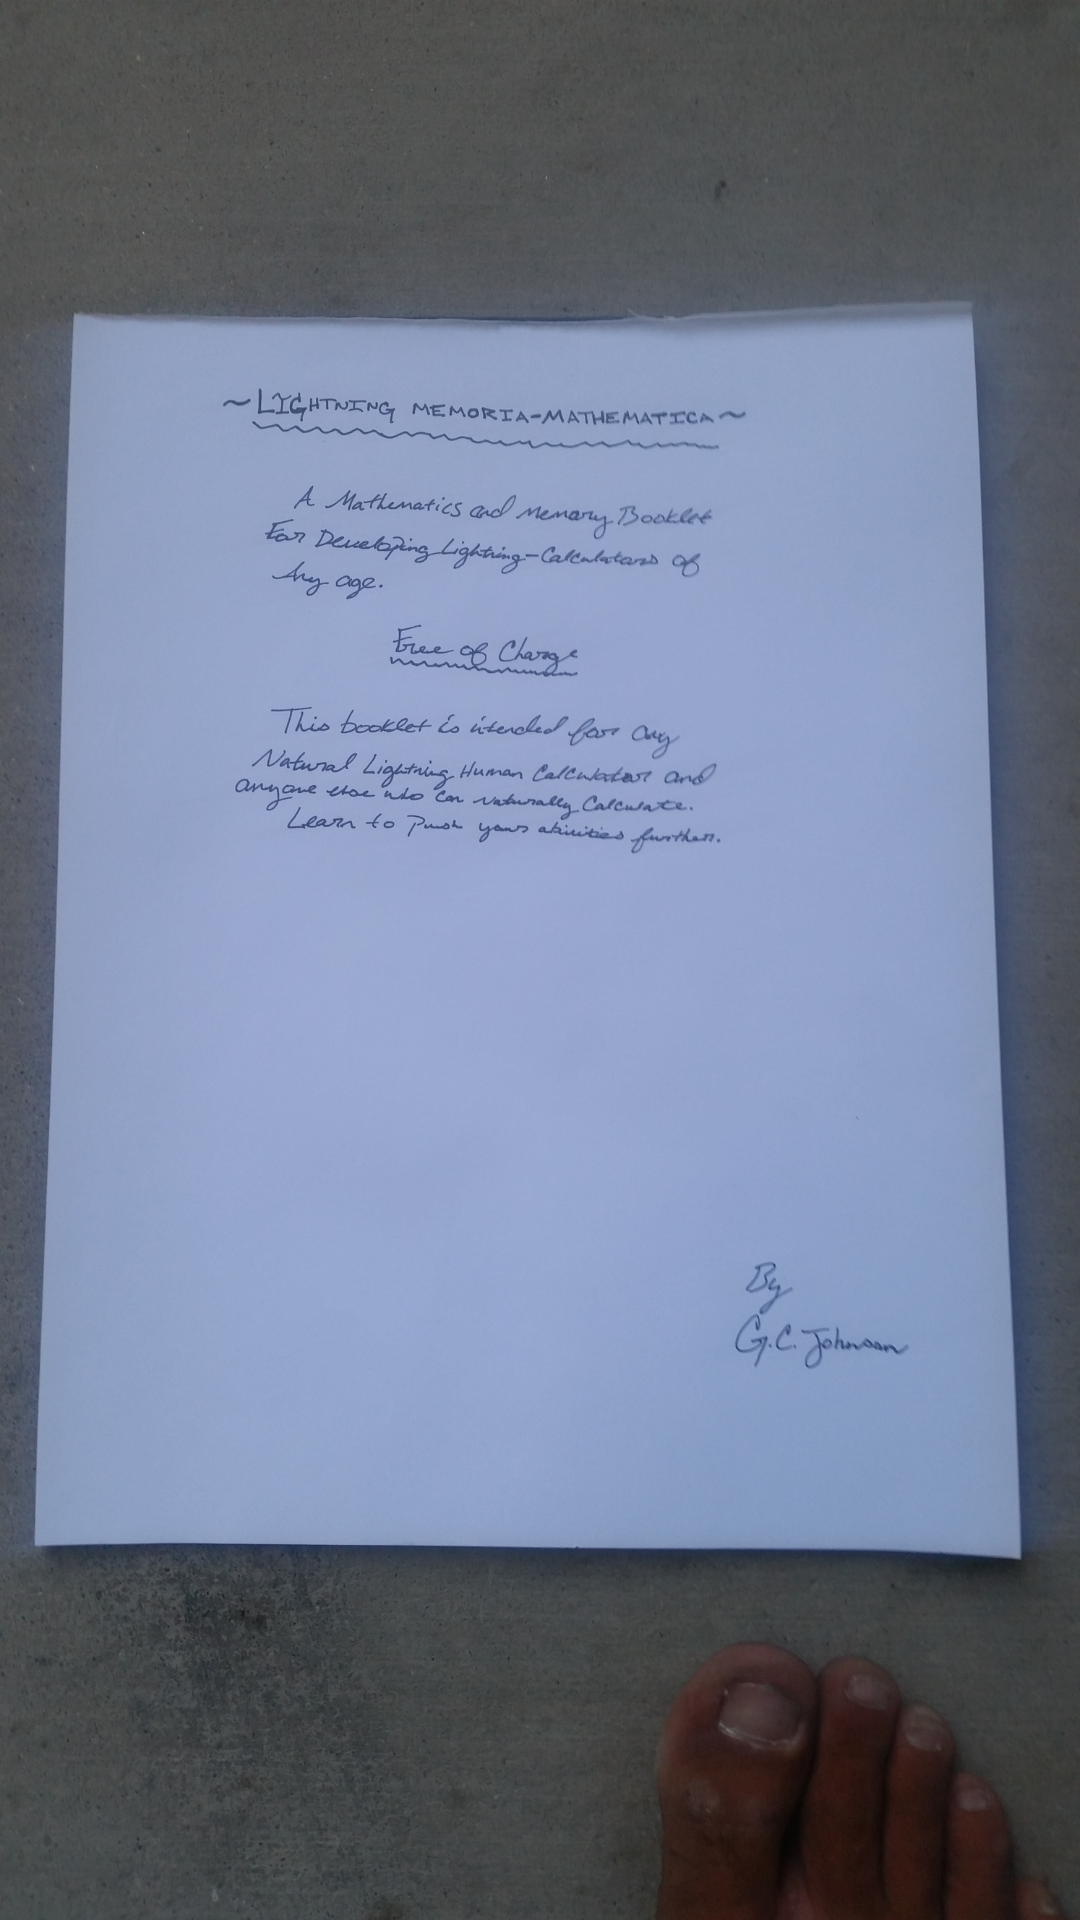 ~LIGHTNING MEMORIA-MATHEMATICA~
A Mathematics and Memory Booklet
For Developing Lightning-Calculators of
Any age.
Free of Charge
This booklet is intended for any
Natural Lightning Human Calculator and
anyone else who can naturally Calculate.
Learn to Push yours abilities further.
By
G.C. Johnson